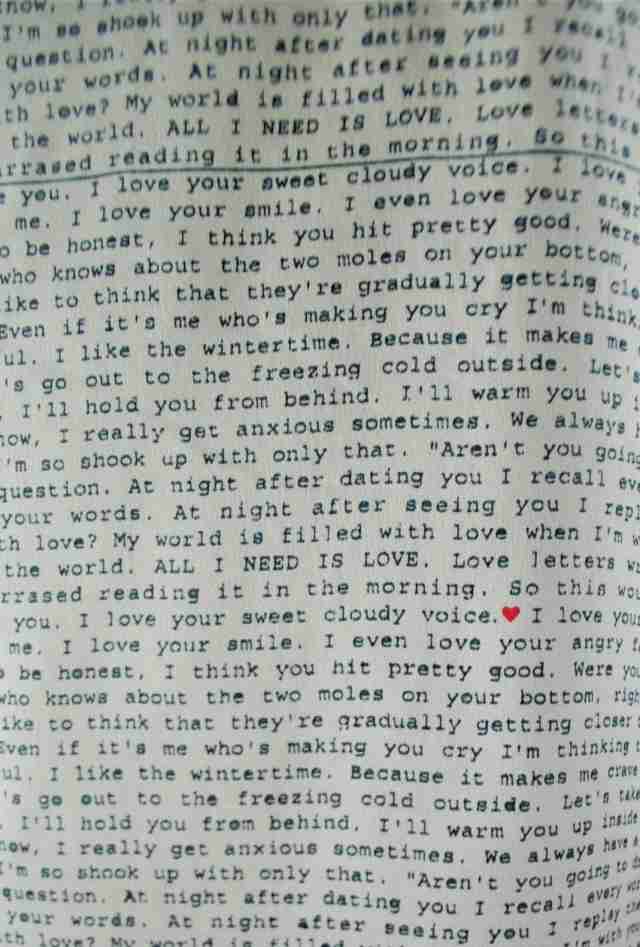 I'm so shook up with only that. "Aren't you
question. At night after dating you I recall
your words. At night after seeing you I
th love? My world is filled with love when I'm
the world. ALL I NEED IS LOVE. Love letters
rrased reading it in the morning. So this
you. I love your sweet cloudy voice. I love
me. I love your smile. I even love your angr
o be honest, I think you hit pretty good. Were
who knows about the two moles on your bottom,
ike to think that they're gradually getting clo
Even if it's me who's making you cry I'm think
ul. I like the wintertime. Because it makes me
's go out to the freezing cold outside. Let's
. I'll hold you from behind. I'll warm you up
now, I really get anxious sometimes. We always
'm so shook up with only that. "Aren't you going
question. At night after dating you I recall eve
your words. At night after seeing you I repl
th love? My world is filled with love when I'm w
the world. ALL I NEED IS LOVE. Love letters w
rrased reading it in the morning. So this wou
you. I love your sweet cloudy voice.♥ I love your
me. I love your smile. I even love your angry f
o be honest, I think you hit pretty good. Were you
who knows about the two moles on your bottom, righ
ike to think that they're gradually getting closer
Even if it's me who's making you cry I'm thinking t
ul. I like the wintertime. Because it makes me crave
's go out to the freezing cold outside. Let's take
. I'll hold you from behind. I'll warm you up inside
now, I really get anxious sometimes. We always have a
I'm so shook up with only that. "Aren't you going to
question. At night after dating you I recall every wor
your words. At night after seeing you I replay the
th love? My world is filled